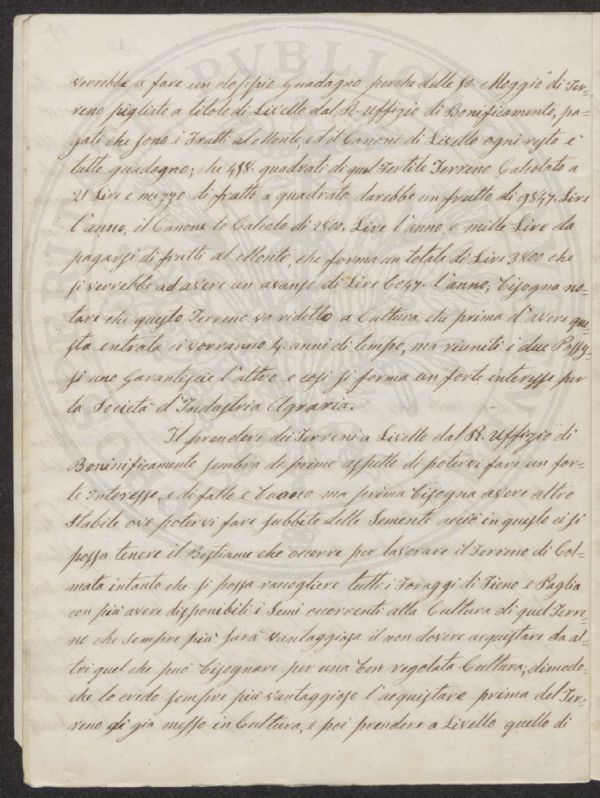 verrebbe a fare un doppio Guadagno perche delle 50 Moggio di Ter-
reno pigliato a titolo di Livello dal R. Uffizio di Bonificamento, pa-
gati che sono i Frutti al Monte, ed il Canone di Livello ogni resto è
tutto guadagno; che 458 quadrati di quel Fertile Terreno Calcolato a
21 Lire e mezzo di frutto a quadrato darebbe un frutto di 9847 Lire
l'anno, il Canone lo Calcolo di 2800. Lire l'anno e mille Lire da
pagarsi di frutti al Monte, che forma un totale di Lire 3800 che
si verrebbe ad avere un avanzo di Lire 6047. l'anno; bisogna no-
tare che questo Terreno va ridotto a Cultura che prima d'avere que-
sta entrata ci vorranno 4 anni di tempo, ma riuniti i due Posses-
si uno Garantiscie l'altro e cosi si forma un forte interesse per
la Società d'Industria Agraria.
Il prendere dei Terreni a Livello dal R. Uffizio di
Boninificamento sembra di primo aspetto di potervi fare un for-
te Interesse, e di fatto è buono ma prima bisogna avere altro
Stabile ove potervi fare subbito delle Semente acciò in questo ci si
possa tenere il Bestiame che occorre per lavorare il Terreno di Col-
mata intanto che si possa raccogliere tutti i Foraggi di Fieno e Paglia
con piu avere disponibili i Semi occorrenti alla Cultura di quel Terre-
no che sempre piu sarà vantaggiosa il non dovere acquistare da al-
tri quel che puoi bisognare per una ben regolata Cultura; dimodo-
che lo credo sempre piu vantaggioso l'acquistare prima del Ter-
reno gia messo in Cultura, e poi prendere a Livello quello di